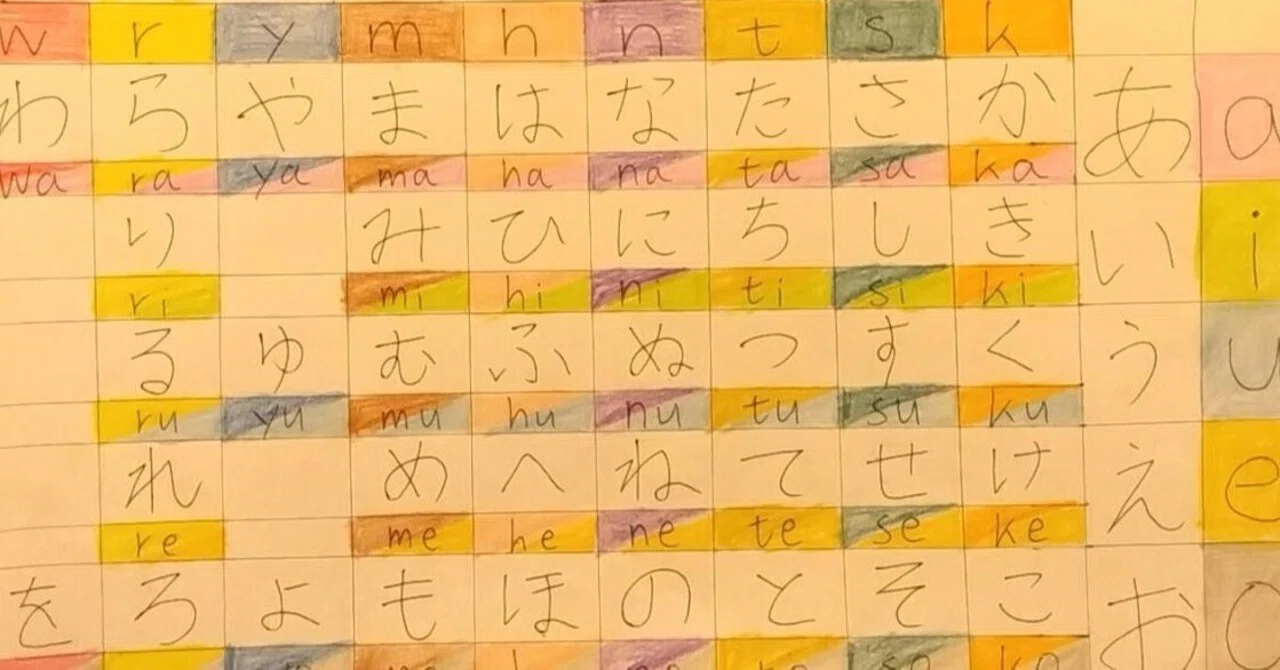 w r y m h n t s k
わ ら や ま は な た さ か あ a
wa ra ya ma ha na ta sa ka
り み ひ に ち し き い i
ri mi hi ni ti si ki
る ゆ む ふ ぬ つ す く う u
ru yu mu hu nu tu su ku
れ め へ ね て せ け え e
re me he ne te se ke
を ろ よ も ほ の と そ こ お